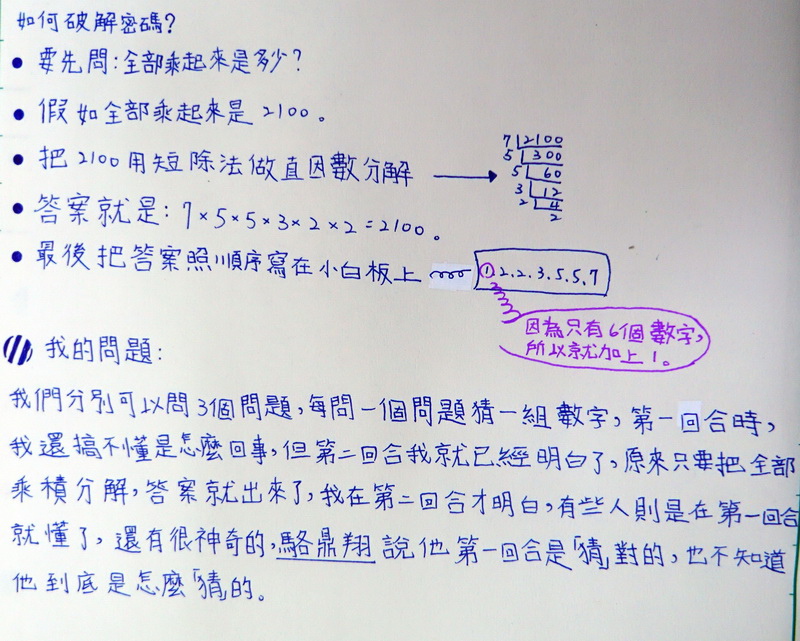 如何破解密碼?
• 要先問:全部乘起來是多少?
• 假如全部乘起來是2100。
• 把2100用短除法做直因數分解 →
7 2100
5 300
5 60
3 12
2 4
2
• 答案就是:7×5×5×3×2×2=2100。
• 最後把答案照順序寫在小白板上
1.2.2.3.5.5.7
因為只有6個數字,
所以就加上1。
我的問題:
我們分別可以問3個問題,每問一個問題猜一組數字,第一回合時,
我還搞不懂是怎麼回事,但第二回合我就已經明白了,原來只要把全部
乘積分解,答案就出來了,我在第二回合才明白,有些人則是在第一回合
就懂了,還有很神奇的,駱鼎翔說他第一回合是「猜」對的,也不知道
他到底是怎麼「猜」的。